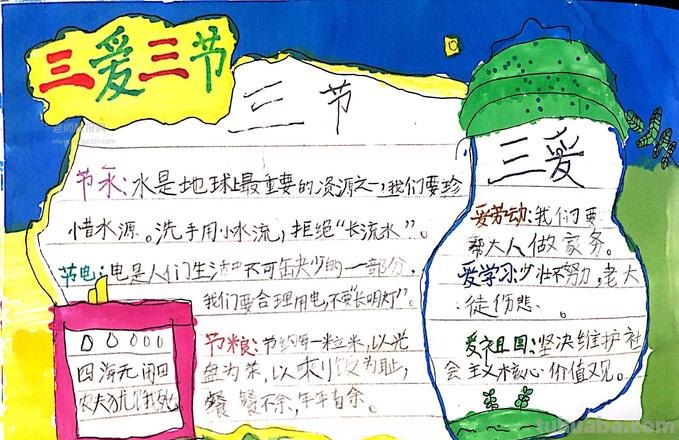 三爱三节
三节
节水:水是地球上最重要的资源之一,我们要珍
惜水源。洗手用小水流,拒绝“长流水”。
节电:电是人们生活中不可缺少的一部分,
我们要合理用电,不要“长明灯”。
节粮:节约每一粒米,以光
盘为荣,以剩饭为耻,
餐餐不余,年年有余。
四海无闲田
农夫犹饿死
三爱
爱劳动:我们要
帮大人做家务。
爱学习:少壮不努力,老大
徒伤悲。
爱祖国:坚决维护社
会主义核心价值观。
tuhuaba.com